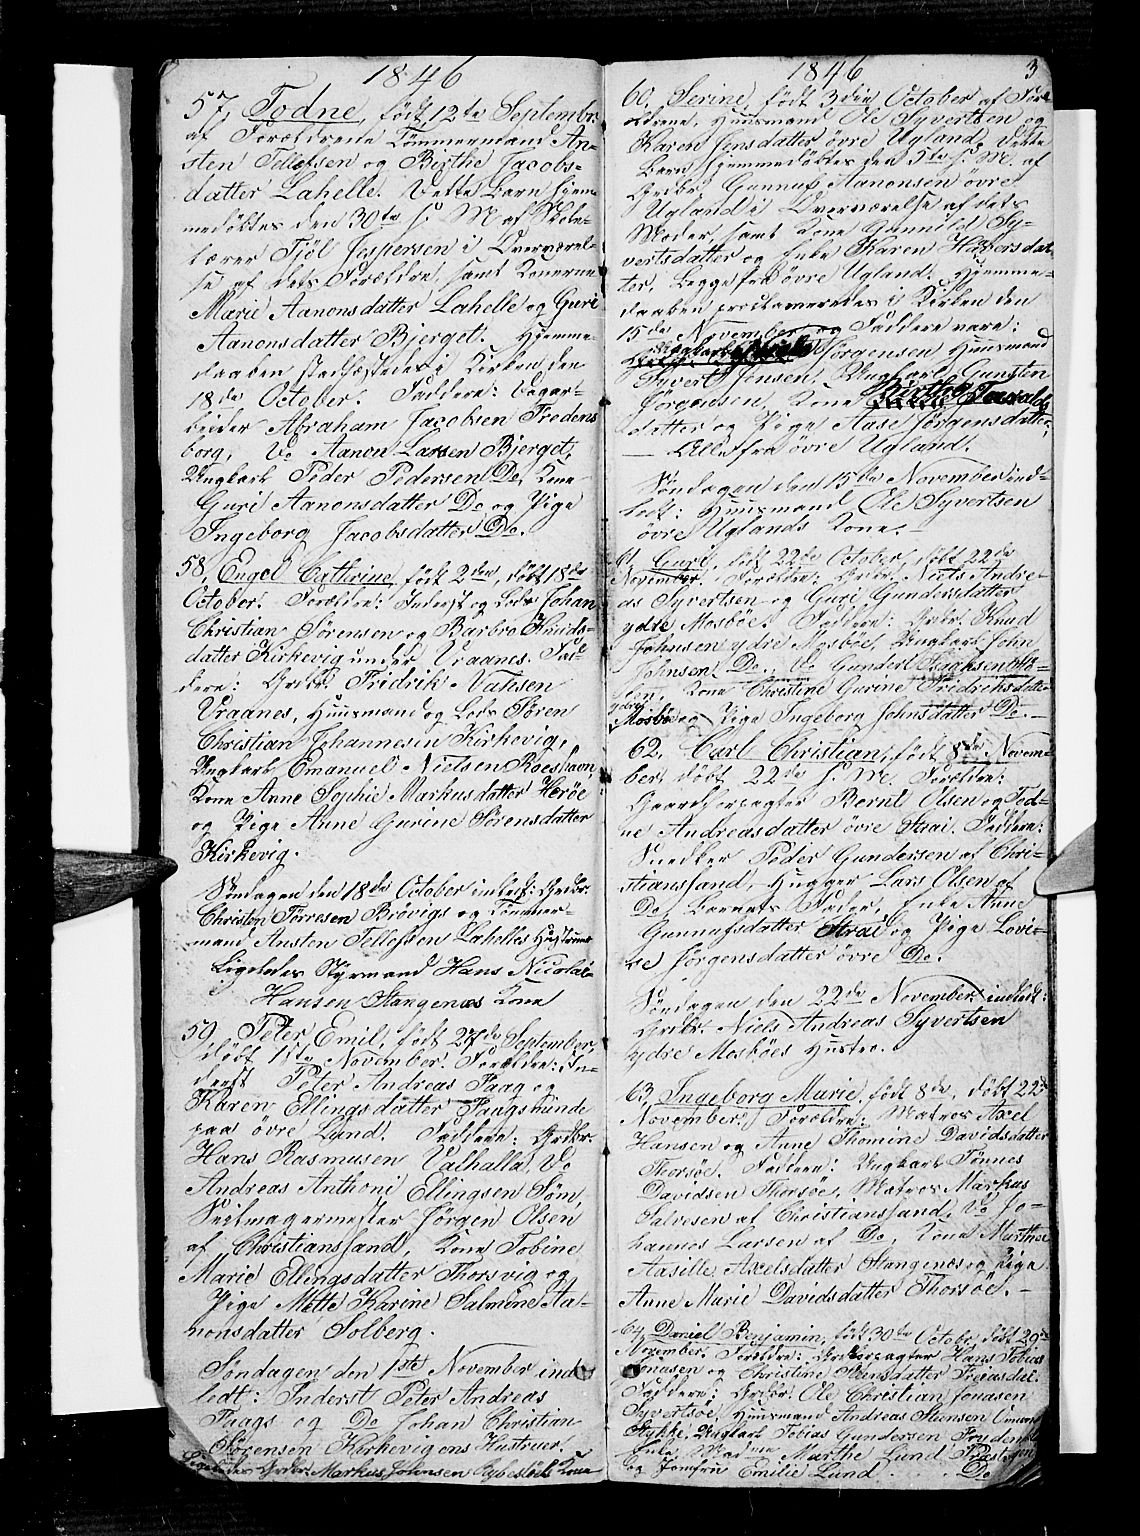 1846
57, Todne, født 12te Septembr.
af Forældrene Tømmermand An-
sten Tellefsen og Birthe Jacobs-
datter Lahelle. Dette Barn hjem-
medøbtes den 30te s. M. af Skole-
lærer Fjøl Jespersen i Overværel-
se af dets Forældre, samt Konerne
Marie Aanonsdatter Lahelle og Guri
Aanonsdatter Bjerget. Hjemme-
daaben stadfæstedes i Kirken den
18de October. Faddere: Vegar-
beider Abraham Jacobsen Fredens
borg, Do Aanon Larsen Bjerget,
Ungkarl Peder Pedersen Do, Kone
Guri Aanonsdatter Do og Pige
Ingeborg Jacobsdatter Do.
58, Engel Cathrine, født 2den, døbt 18de
October. Forældre: Inderst og Lods Johan
Christian Sørensen og Barbro Knuds-
datter Kirkevig under Vraanes. Fad-
dere: Grdbr. Fridrik Natisen
Vraanes, Huusmand og Lods Søren
Christian Johannesen Kirkevig,
Ungkarl Emanuel Nielsen Roeshavn,
Kone Anne Sophie Markusdatter Herøe
og Pige Anne Gurine Sørensdatter
Kirkevig.
Søndagen den 18de October introd: Grdbr.
Christen Torresen Brøvigs og Tømmer-
mand Ansten Tellefsen Lahelles Hustruer
Ligeledes Styrmand Hans Nicolai
Hansen Stangenæs Kone
59, Peter Emil, født 27de September,
døbt 1ste November. Forældre: In-
derst Peter Andreas Faag og
Karen Ellingsdatter Faagsminde
paa øvre Lund. Faddere: Grdbr.
Hans Rasmusen Valhalla, Do
Andreas Anthoni Ellingsen Søm,
Seilmagermester Jørgen Olsen
af Christianssand, Kone Tobine
Marie Ellingsdatter Thorsvig og
Pige Mette Karine Salmine Aa-
nonsdatter Solberg.
Søndagen den 1ste November ind-
ledt: Inderst Peter Andreas
Faags og Do Johan Christian
Sørensen Kirkevigens Hustruer.
Ligeledes Grdbr. Markus Johnsen Kone
1846 3
60, Serine, født 3die October af For-
ældrene, Huusmand Ole Syvertsen og
Karen Jensdatter øvre Ugland. Dette
Barn hjemmedøbtes den 5te s. M. af
Grdbr. Gunnuf Aanonsen øvre
Ugland i Overværelse af dets
Moder, samt Kone Gunnild Sy-
vertsdatter og Enke Karen Holfersdat-
ter, Begge fra øvre Ugland. Hjemme-
daaben proclameredes i Kirken den
15de November og Faddere vare:
Jørgensen Huusmand
Syvert Jensen, Ungkarl Gunsten
Jørgensen, Kone Birthe Torvalds
datter og Pige Aase Jørgensdatter,
Alle fra øvre Ugland.
Søndagen den 15de November ind-
ledt: Huusmand Ole Syvertsen
øvre Uglands Kone.
61, Guri, født 22de October, døbt 22de
November. Forældre: Grdbr. Niels Andre-
as Syvertsen og Guri Gundersdatter
ydre Mosbøe. Faddere: Grdbr. Knud
Johnsen ydre Mosbøe, Ungkarl John
Johnsen Do, Do Gunder Isachsen Mo-
sen, Kone Christine Gurine Fridriksdatter
ydre
Mosbøe og Pige Ingeborg Johnsdatter Do.
62, Carl Christian, født 8de Novem-
ber, døbt 22de s. M. Forældre:
Gaardforpagter Bernt Olsen og Ted-
ne Andreasdatter øvre Strai. Faddere:
Snedker Peder Gundersen af Chri-
stianssand, Hugger Lars Olsen af
Do, Barnets Fader, Enke Anne
Gunnufsdatter Strai og Pige Lovi-
se Jørgensdatter øvre Do.
Søndagen den 22de November indledt:
Grdbr. Niels Andreas Syvertsen
ydre Mosbøes Hustro.
63, Ingeborg Marie, født 8de, døbt 22de
November. Forældre: Matros Axel
Hansen og Anne Thomine Davidsdatter
Thorsøe. Faddere: Ungkarl Tønnes
Davidsen Thorsøe, Matros Markus
Salvesen af Christianssand, Do Jo-
hannes Larsen af Do, Kone Marthe
Aasille Axelsdatter Stangenæs og Pige
Anne Marie Davidsdatter Thorsøe.
64, Daniel Benjamin, født 30te Octobr., døbt 29de
November. Forældre: Grdforpagter Hans Tobias
Jonasen og Christine Stensdatter
Faddere: Grdbr. Ole Christian Jonasen
Syvertsøe, Huusmand Andreas Steensen
Stykke, Ungkarl Tobias Gundersen Frydendal
Marthe Lund Præstegaard
og Jomfru Emilie Lund Do